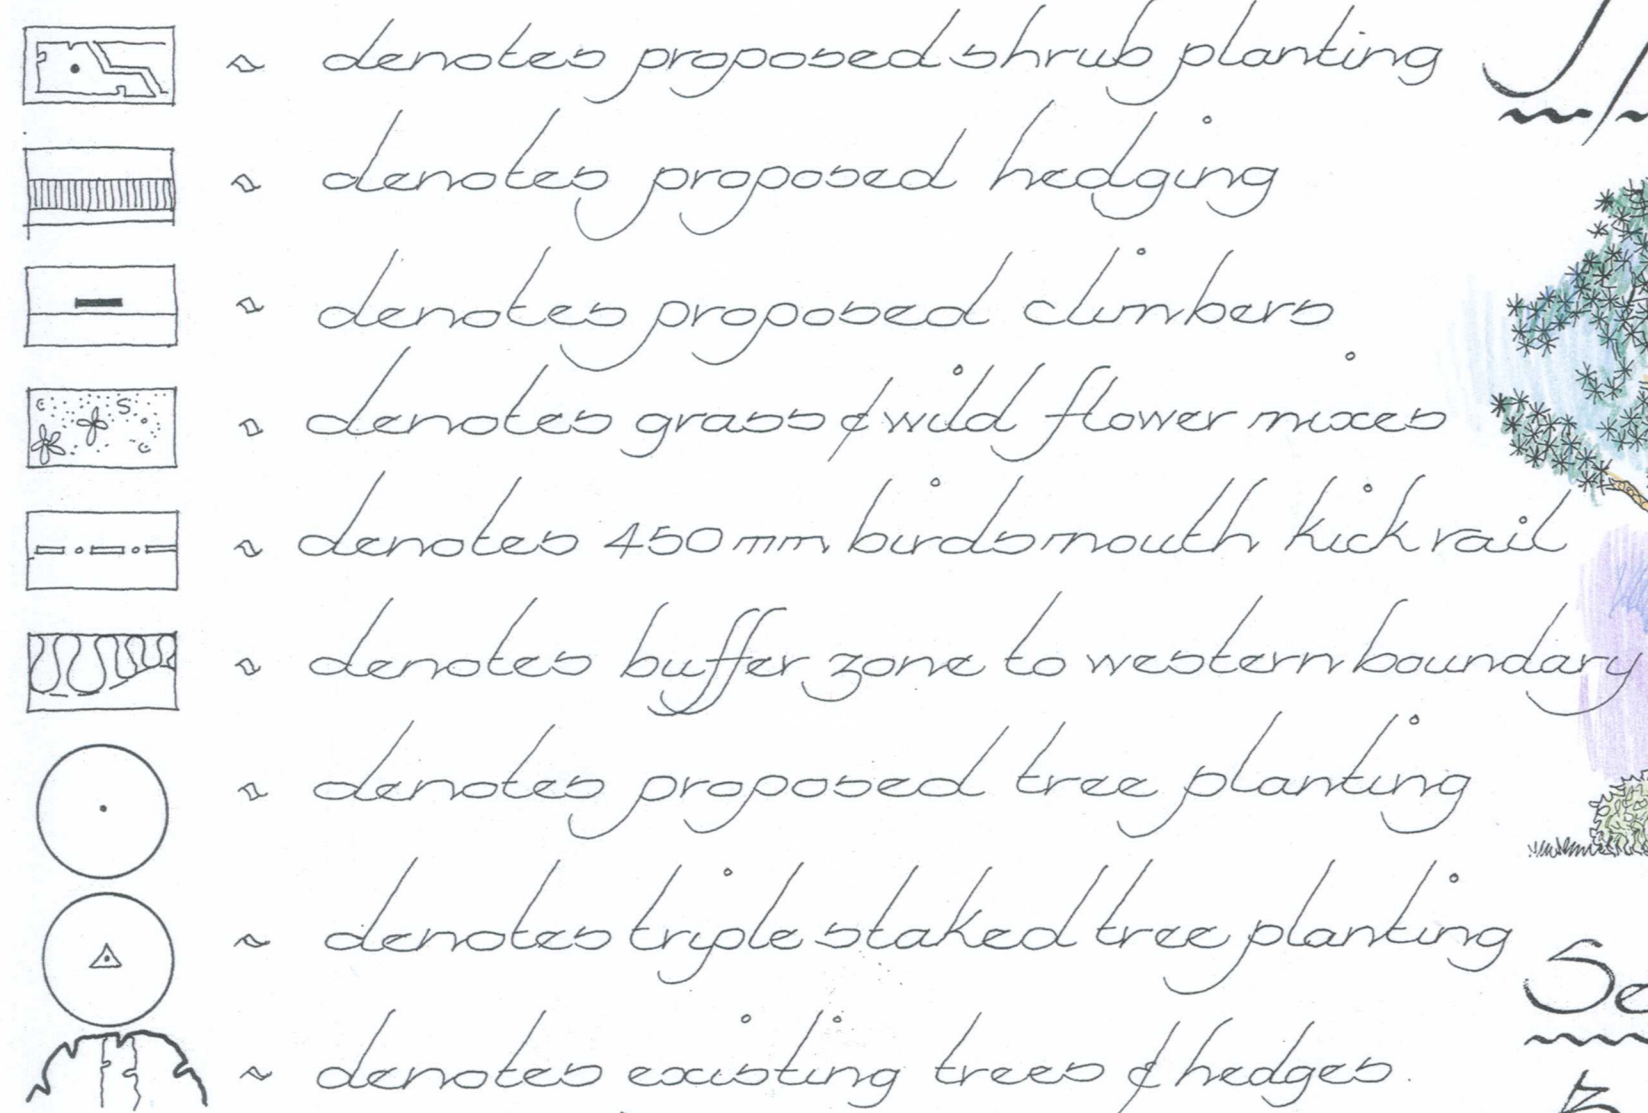 ~ denotes proposed shrub planting
~ denotes proposed hedging
~ denotes proposed climbers
~ denotes grass & wild flower mixes
~ denotes 450mm birdsmouth kick rail
~ denotes buffer zone to western boundary
~ denotes proposed tree planting
~ denotes triple staked tree planting
~ denotes existing trees & hedges.
Se